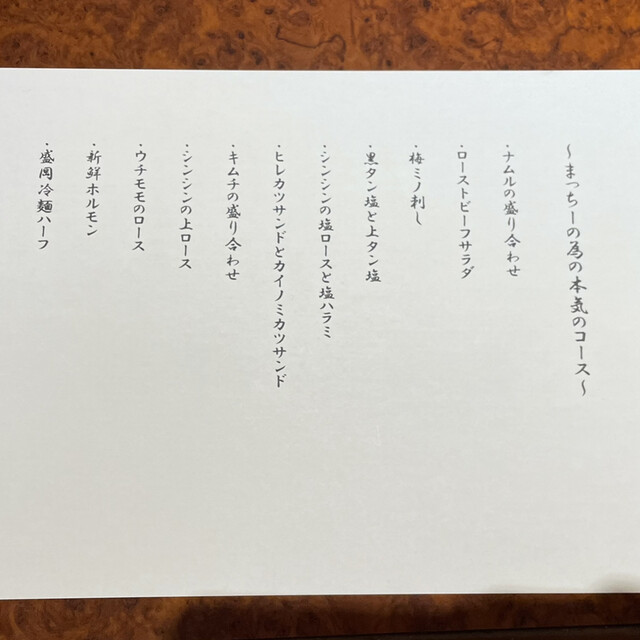 ～まっちーの為の本気のコース～
・ナムルの盛り合わせ
・ローストビーフサラダ
・梅ミノ刺し
・黒タン塩と上タン塩
・シンシンの塩ロースと塩ハラミ
・ヒレカツサンドとカイノミカツサンド
・キムチの盛り合わせ
・シンシンの上ロース
・ウチモモのロース
・新鮮ホルモン
・盛岡冷麺ハーフ